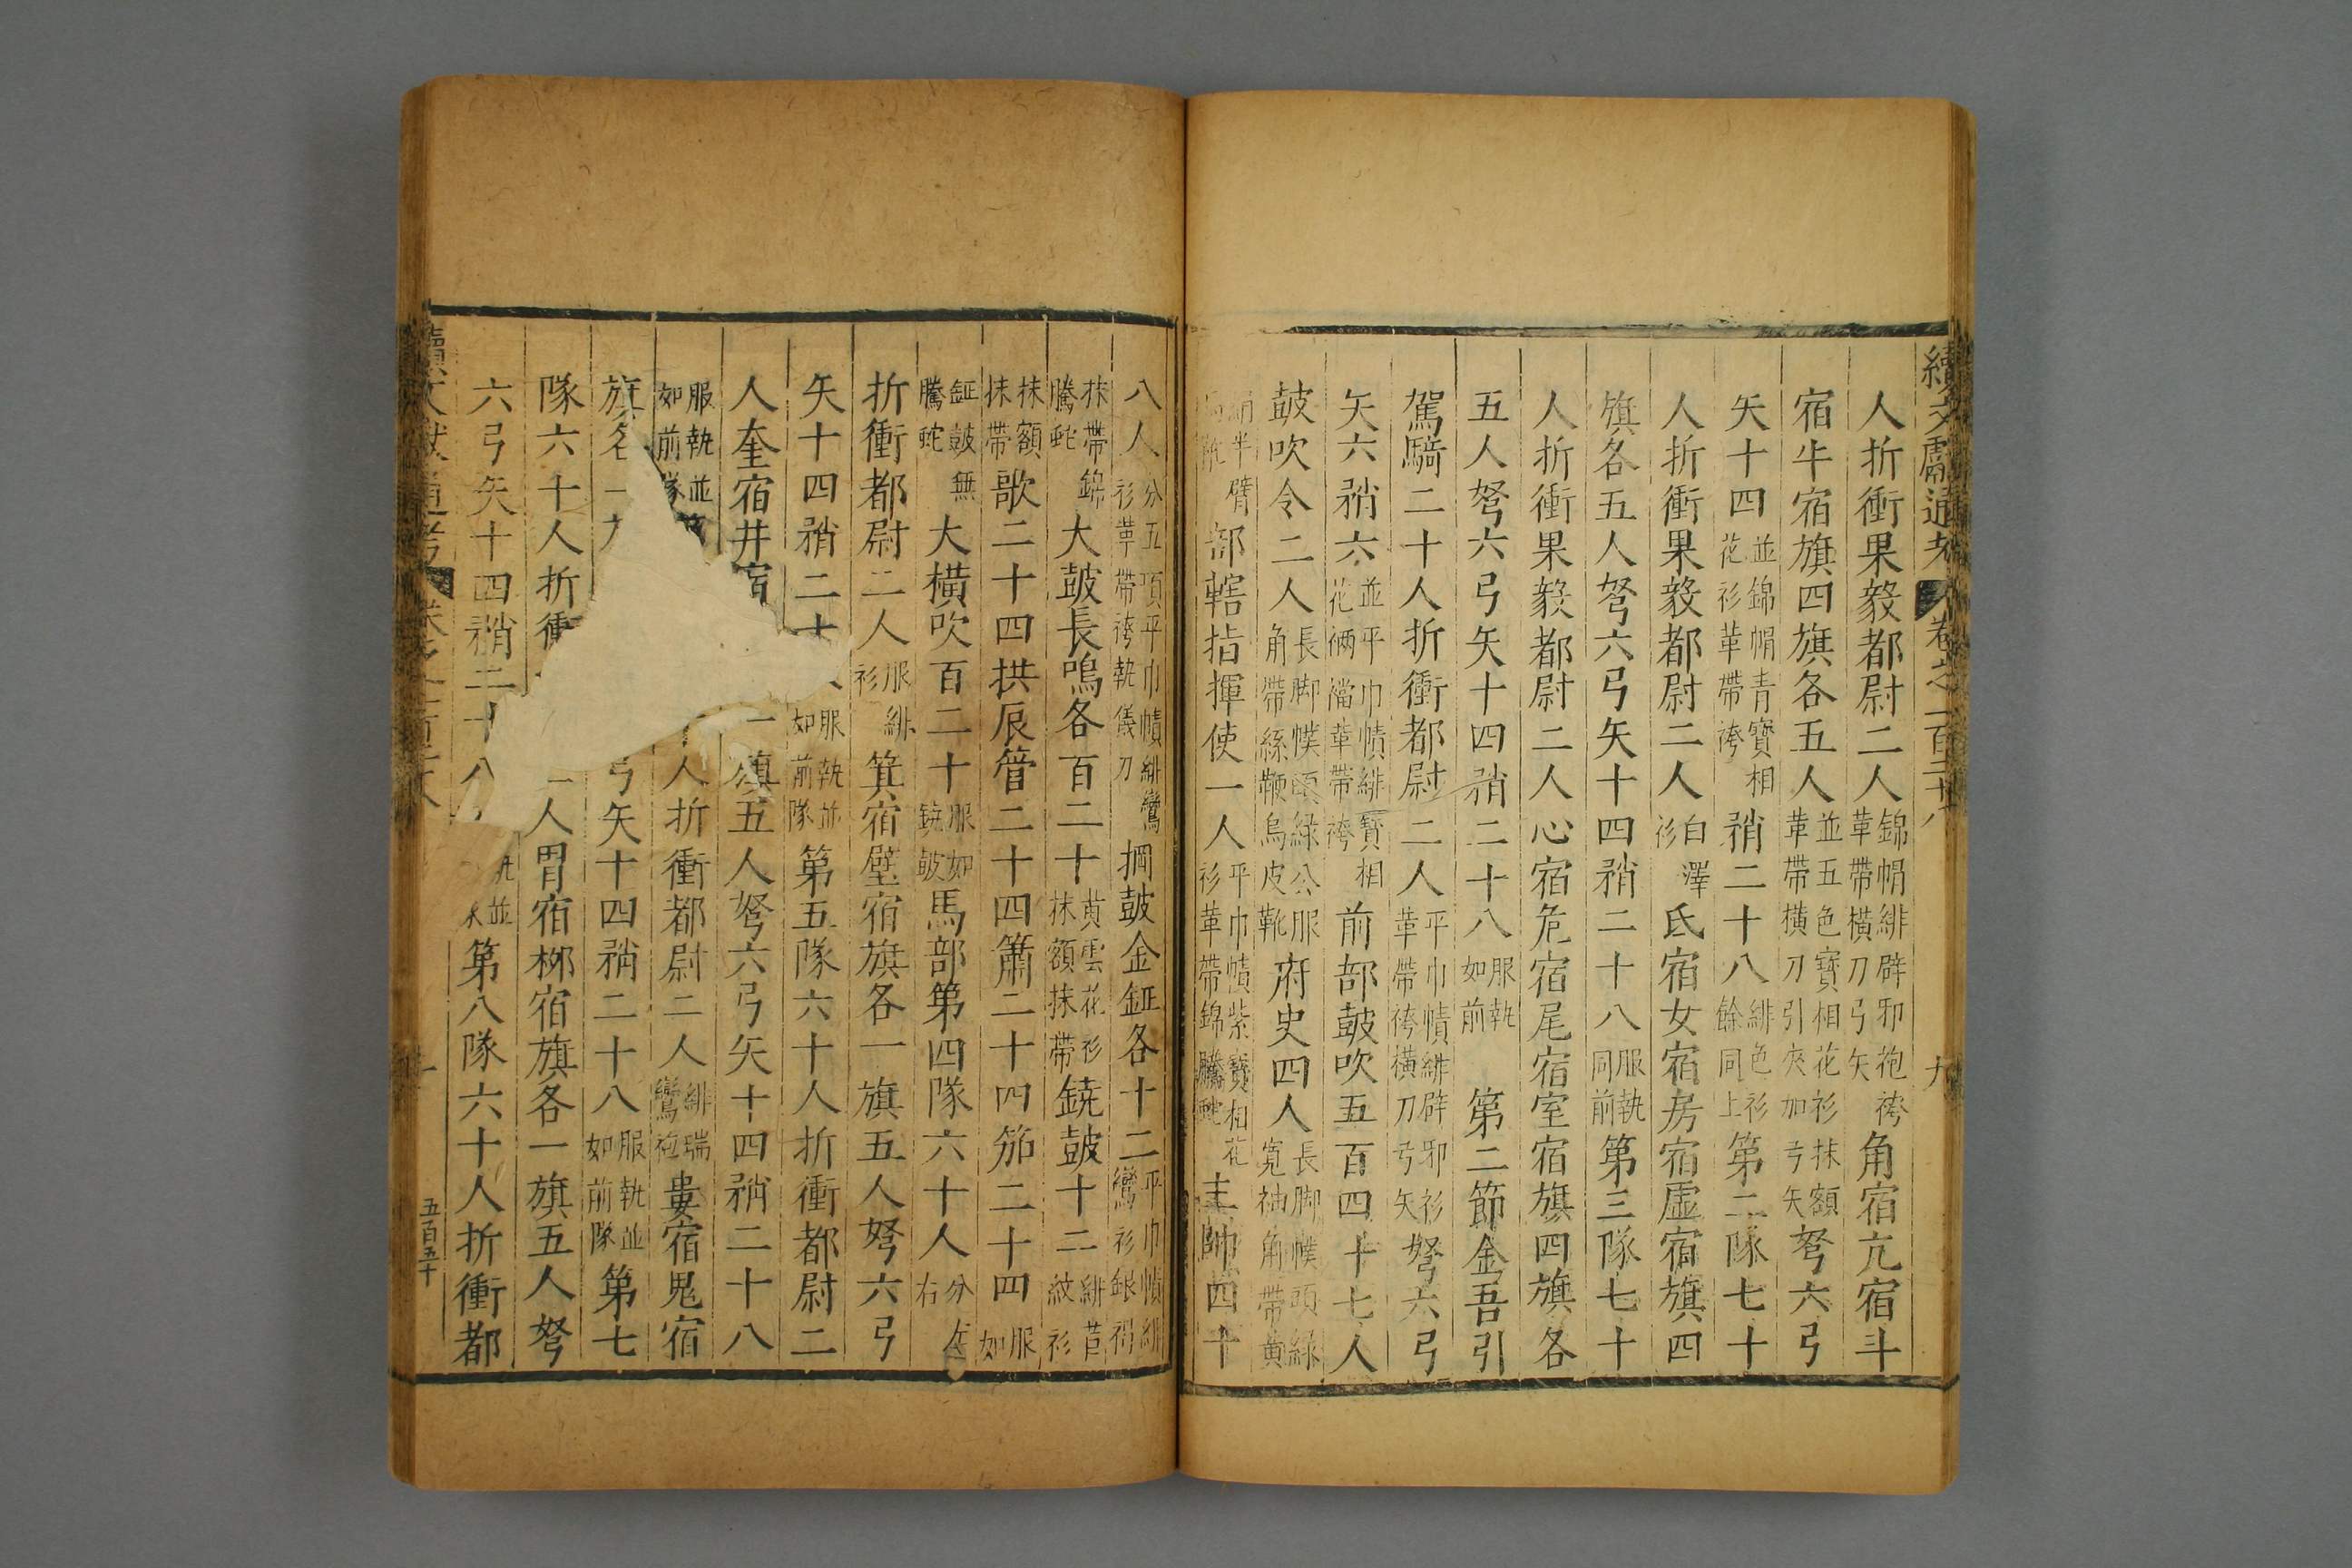 續文獻通考 卷之一百二十八 九
人折衝果毅都尉二人錦帽緋辟邪袍袴革帶橫刀弓矢角宿亢宿斗
宿牛宿旗四旗各五人並五色寶相花衫抹額革帶橫刀引夾加弓矢弩六弓
矢十四並錦帽青寶相花衫革帶袴矟二十八緋色衫餘同上第二隊七十
人折衝果毅都尉二人白澤衫氐宿女宿房宿虛宿旗四
旗各五人弩六弓矢十四矟二十八服執同前第三隊七十
人折衝果毅都尉二人心宿危宿尾宿室宿旗四旗各
五人弩六弓矢十四矟二十八服執如前第二節金吾引
駕騎二十人折衝都尉二人平巾幘緋辟邪衫革帶袴橫刀弓矢弩六弓
矢六矟六並平巾幘緋寶相花裲襠革帶袴前部鼓吹五百四十七人
鼓吹令二人長脚幞頭綠公服角帶絲鞭烏皮靴府史四人長脚幞頭綠寬袖角帶黃
絹半臂靴部轄指揮使一人平巾幘紫寶相花衫革帶錦騰蛇主帥四十
八人分五項平巾幘緋鸞衫革帶袴執儀刀掆鼓金鉦各十二平巾幘緋鸞衫銀褐
抹帶錦騰蛇大鼓長鳴各百二十黃雲花衫抹額抹帶鐃鼓十二緋苣紋衫
抹額抹帶歌二十四拱辰管二十四簫二十四笳二十四服如
鉦鼓無騰蛇大橫吹百二十服如鐃鼓馬部第四隊六十人分左右
折衝都尉二人服緋衫箕宿壁宿旗各一旗五人弩六弓
矢十四矟二十服執並如前隊第五隊六十人折衝都尉二
人奎宿井宿一旗五人弩六弓矢十四矟二十八
服執並如前隊人折衝都尉二人緋瑞鸞袍婁宿鬼宿
旗各一弓矢十四矟二十八服執並如前隊第七
隊六十人折衝人胃宿柳宿旗各一旗五人弩
六弓矢十四矟二十八並第八隊六十人折衝都
五百五十